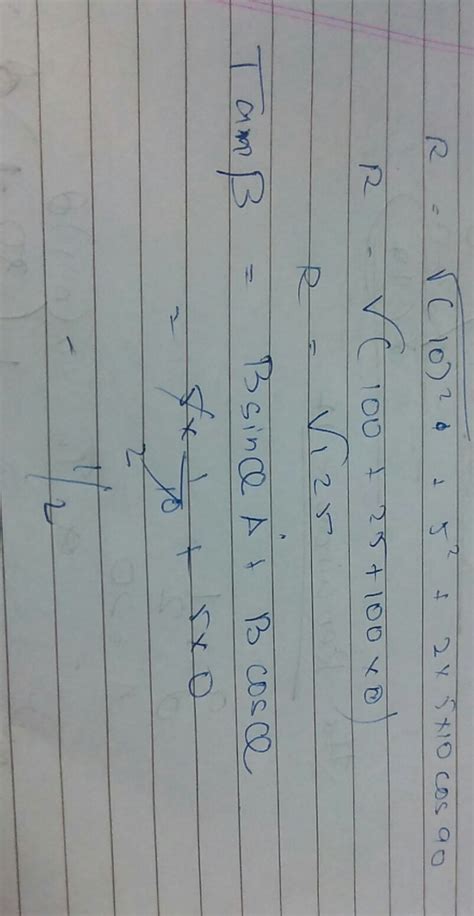 R = √(10)² + 5² + 2×5×10 cos 90
R = √(100 + 25 + 100 × 0)
R = √125
Tan β = B sin α A + B cos α
= 5×1 10 + 5×0
2
= 1/2